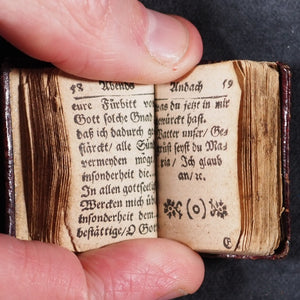 58 Abends
eure Fürbitt von
Gott solche Gnad
daß ich dadurch ge
stärckt/ alle Sün
vermeyden möge
insonderheit die...
In allen gottseel
Wercken mich üb
insonderheit dem
bestättige/O Got
Andach 59
was du jetzt in mir
gewürckt hast.
Vatter unser/ Ge
grüst seyst du Ma
ria/ Ich glaub
an/ ꝛc.
(o)
E